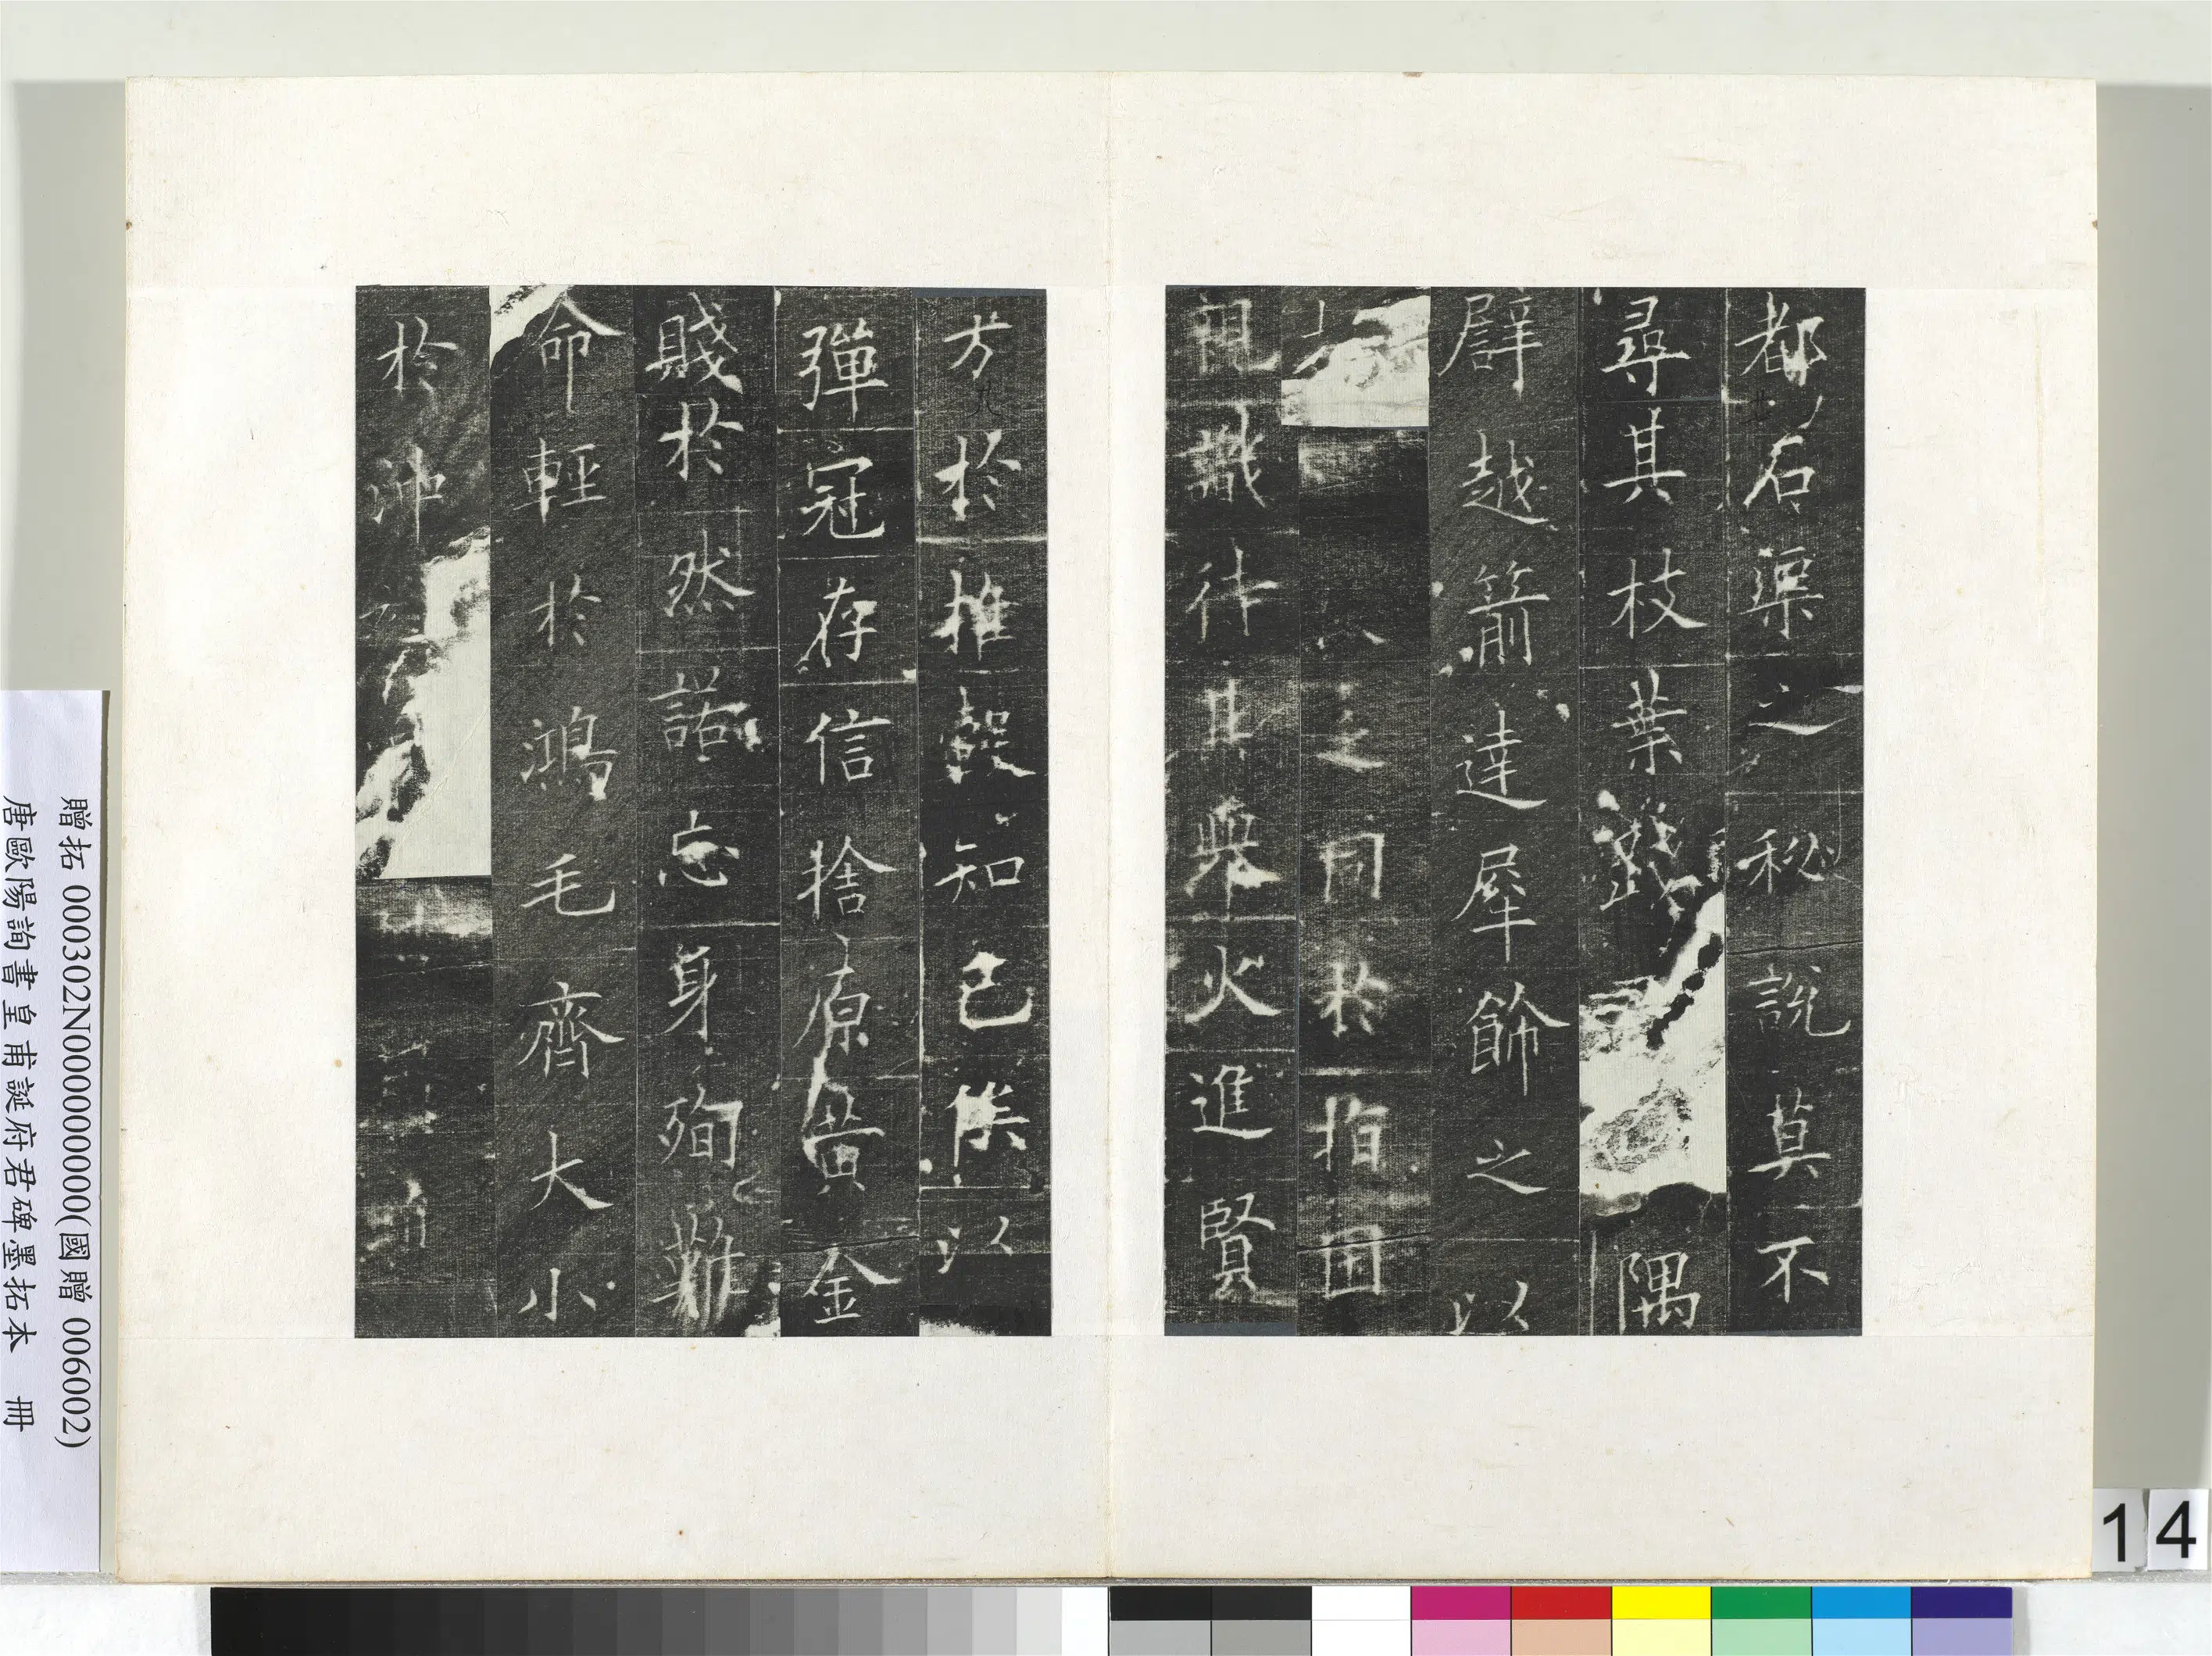 都石渠之秘說莫不
尋其枝葉踐隅
譬越箭達犀飾之以
之同於指囷
視議待其舉火進賢
方於推轂知己俟以
彈冠存信捨原黃金
賤於然諾忘身殉難
命輕於鴻毛齊大小
於沖
贈拓 000302N000000000(國贈 006002)
唐歐陽詢書皇甫誕府君碑墨拓本 冊
14